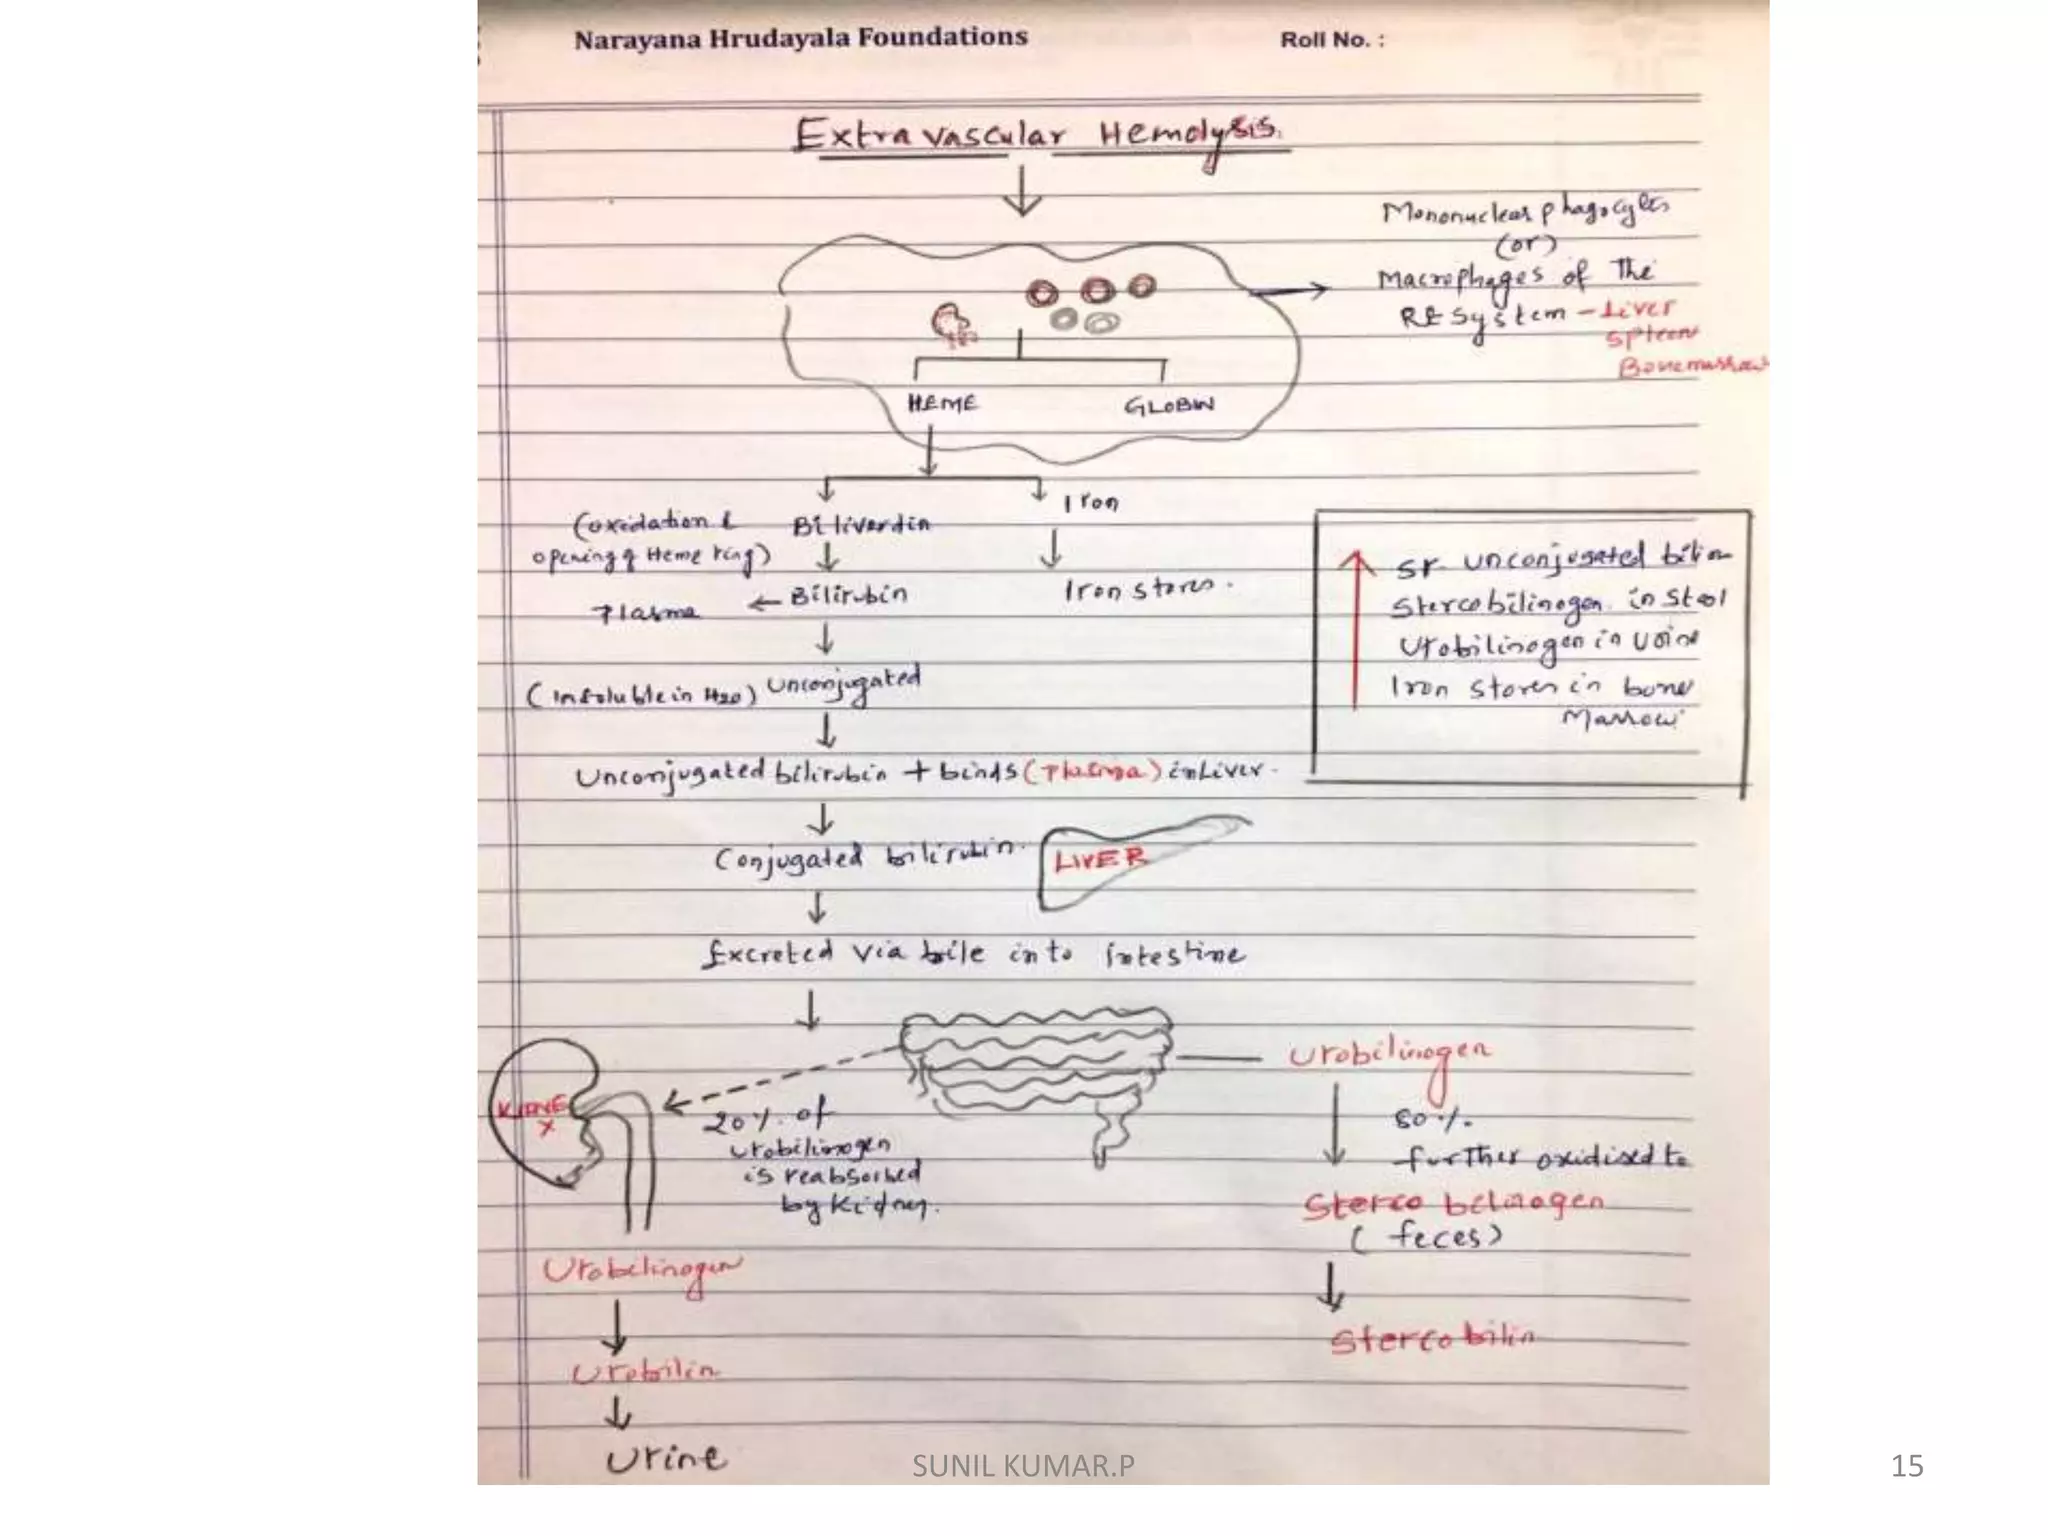 Narayana Hrudayala Foundations
Roll No. :
Extravascular Hemolysis.
Mononuclear phagocytes
(or)
Macrophages of The
RE System - Liver
Spleen
Bonemarrow
HEME
GLOBIN
Iron
(oxidation &
Biliverdin
opening of Heme ring)
Bilirubin
Iron stores.
Plasma
(Insoluble in H20) Unconjugated
Unconjugated bilirubin + binds (Plasma) in Liver.
Sr. unconjugated
Stercobilinogen in Stool
Urobilinogen in Urine
Iron stores in bone
Marrow.
Conjugated bilirubin.
LIVER
Excreted via bile into intestine
Urobilinogen
20%. of
urobilinogen
is reabsorbed
by Kidney.
80%.
further oxidised to
Sterco belinogen
(feces)
Stercobilin
Urobelinogen
Urobilin
Urine
SUNIL KUMAR.P
15